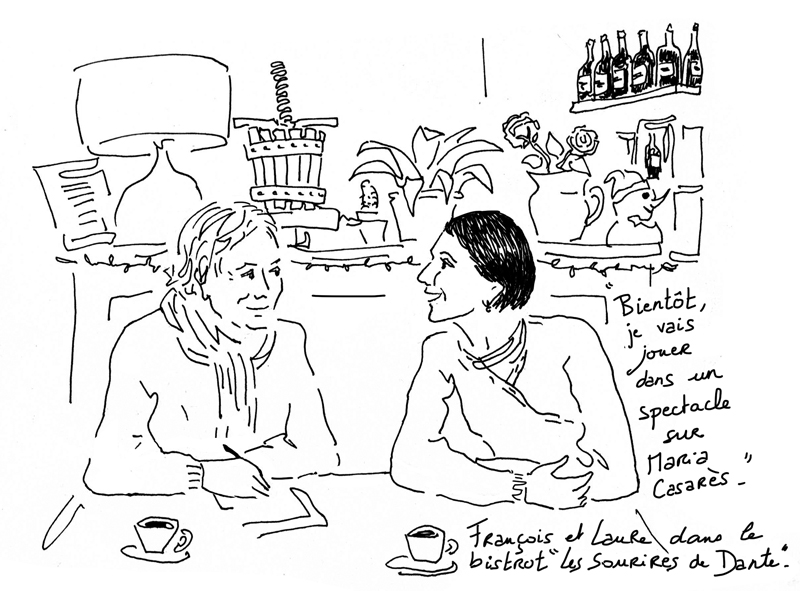 "Bientôt,
je vais
jouer
dans un
spectacle
sur
Maria
Casarès"-
François et Laure dans le
bistrot "les Sourires de Dante".